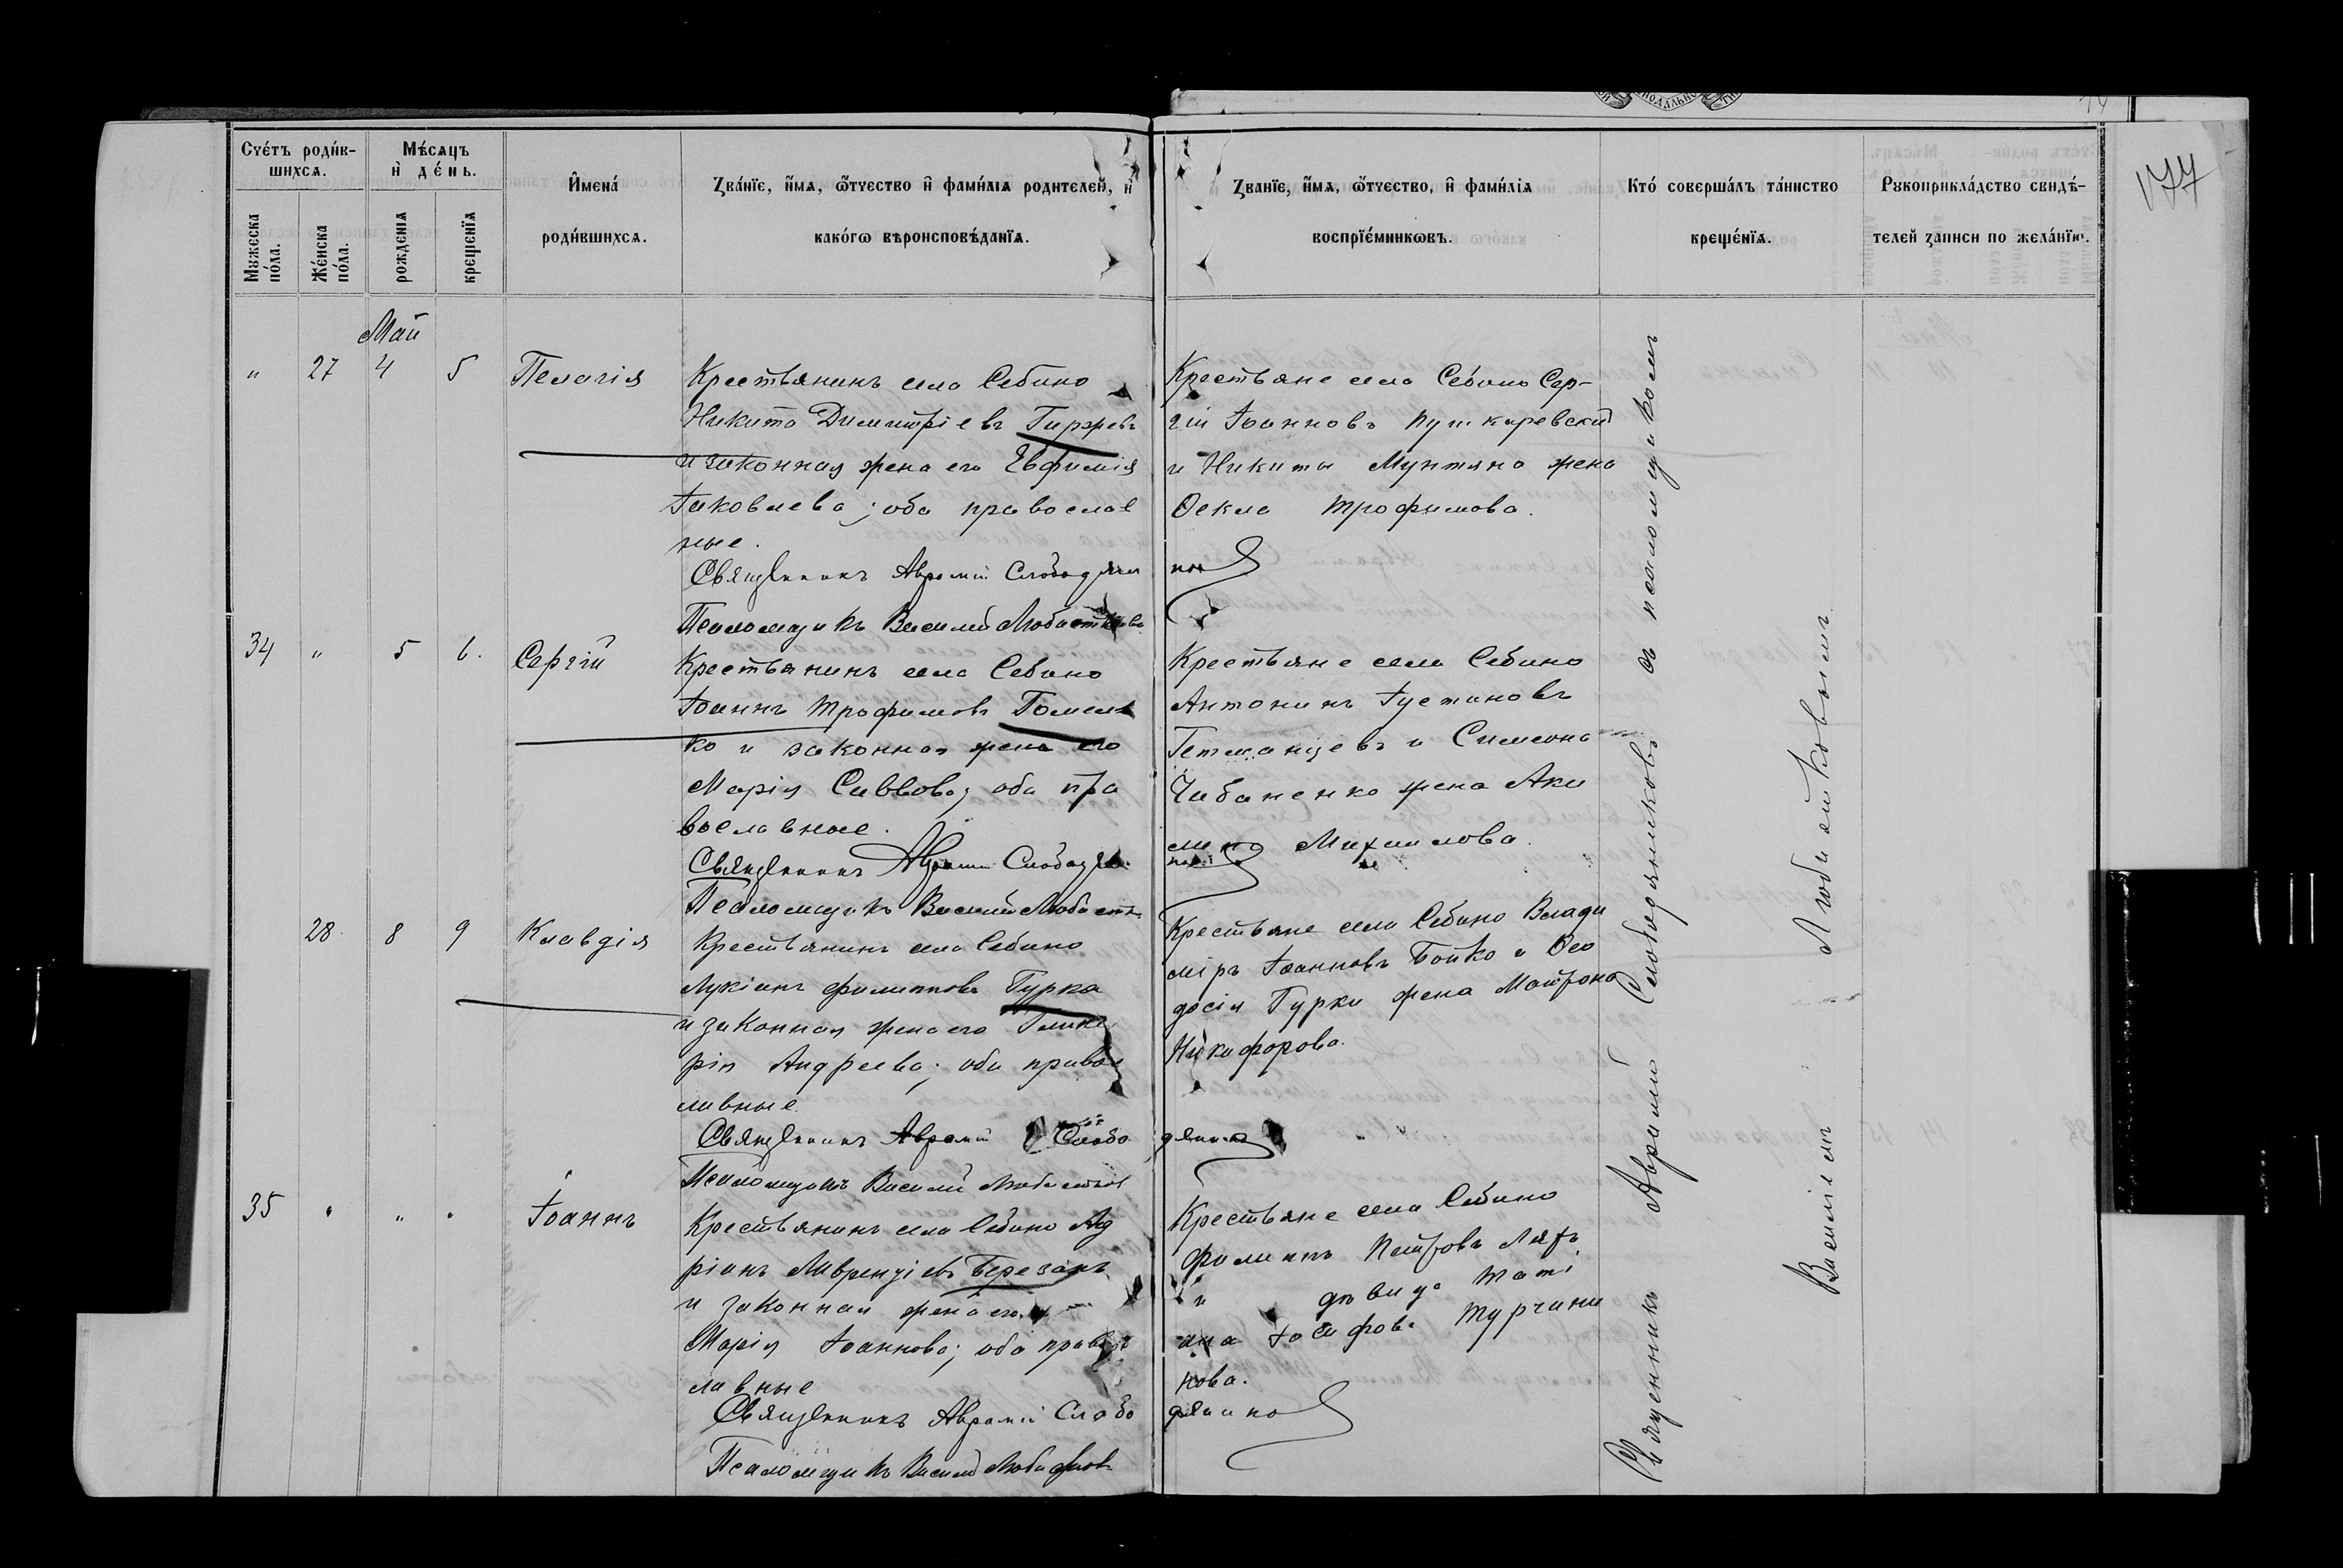 Счетъ родив-
шихся.
Мѣсяцъ
и день.
Имена
родившихся.
Званіе, имя, отчество и фамилія родителей, и
какого вѣроисповѣданія.
Званіе, имя, отчество, и фамилія
воспріемниковъ.
Кто совершалъ таинство
крещенія.
Рукоприкладство свидѣ-
телей записи по желанію.
Мужеска
пола.
Женска
пола.
рожденія
крещенія
177
Май
" 27 4 5 Пелагія
Крестьянинъ села Себино
Никита Димитріевъ Гиржевъ
и законная жена его Евфимія
Іаковлева; оба православ
ные.
Священникъ Аврамій Слободян
Псаломщикъ Василій
Крестьяне села Себино Сер-
гій Іоанновъ Пушкаревскій
и Никиты Мунтяна жена
Ѳекла Трофимова.
34 " 5 6. Сергій
Крестьянинъ села Себино
Іоаннъ Трофимовъ Гомен
ко и законная жена его
Марія Саввова; оба пра
вославные.
Священникъ Аврамій Слободян
Псаломщикъ Василій
Крестьяне села Себино
Антонинъ Іустиновъ
Гетманцевъ и Симеона
Чабаненко жена Аки
лина Михаилова.
28 8 9 Клавдія
Крестьянинъ села Себино
Лукіанъ Филипповъ Гурка
и законная жена его Глике
рія Андреева; оба право
лавные.
Священникъ Аврамій Слобо
дянико
Псаломщикъ Василій
Крестьяне села Себино Влади
міръ Іоанновъ Бойко и Ѳео
досія Гурки жена Матрона
Никифорова.
35 " " " Іоаннъ
Крестьянинъ села Себино Ад
ріанъ Лаврентіевъ Березанъ
и законная жена его
Марія Іоаннова; оба право
лавные
Священникъ Аврамій Слобо
дянико
Псаломщикъ Василій
Крестьяне села Себино
Филиппъ Петровъ Ляхъ
и дѣвица Тати
ана Іосифова Турчани
нова.
Священникъ Аврамій Слободяниковъ съ псаломщикомъ
Василіемъ